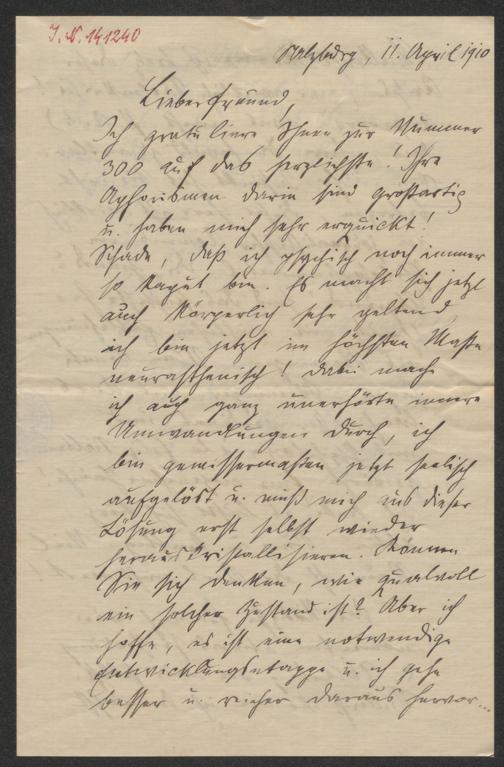 J. N. 141240
Salzburg, 11. April 1910
Lieber Freund,
Ich gratuliere Ihnen zur Nummer
300 auf das herzlichste! Ihre
Aphorismen darin sind großartig
u. haben mich sehr erquickt!
Schade, daß ich psychisch noch immer
so kaput bin. Es macht sich jetzt
auch körperlich sehr geltend,
ich bin jetzt im höchsten Maße
neurasthenisch! Dabei mache
ich auch ganz unerhörte innere
Umwandlungen durch, ich
bin gewissermaßen jetzt seelisch
aufgelöst u. muß mich aus dieser
Lösung erst selbst wieder
herauskristallisieren. Können
Sie sich denken, wie qualvoll
ein solcher Zustand ist? Aber ich
hoffe, es ist eine notwendige
Entwicklungsetappe u. ich gehe
besser u. reicher daraus hervor...